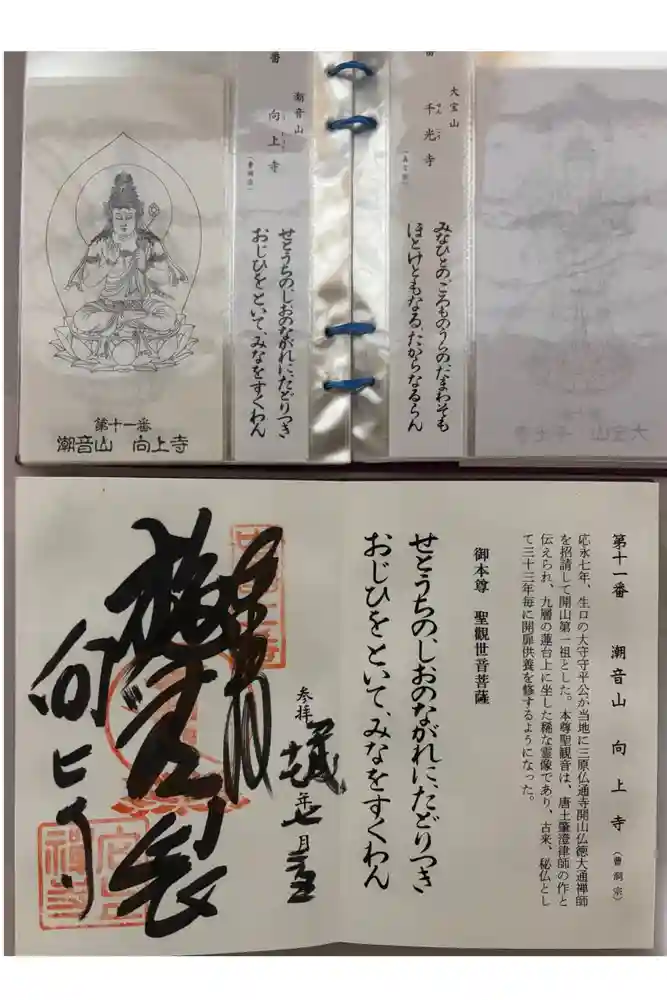 大宝山
千光寺
せん こう
(真言宗)
みなひとのごろものうらのたまわそも
ほとけともなる、たからなるらん
番
潮音山
向上寺
(曹洞宗)
せとうちの、しおのながれに、たどりつき
おじひを、といて、みなをすくわん
第十一番
潮音山 向上寺
第十一番 潮音山 向上寺 (曹洞宗)
応永七年、生口の大守守平公が当地に三原仏通寺開山仏徳大通禅師
を招請して開山第一祖とした。本尊聖観音は、唐土肇澄律師の作と
伝えられ、九層の蓮台上に坐した稀な霊像であり、古来、秘仏とし
て三十三年毎に開扉供養を修するようになった。
御本尊 聖觀世音菩薩
せとうちの、しおのながれに、たどりつき
おじひを、といて、みなをすくわん
参拝
年 月
向上寺